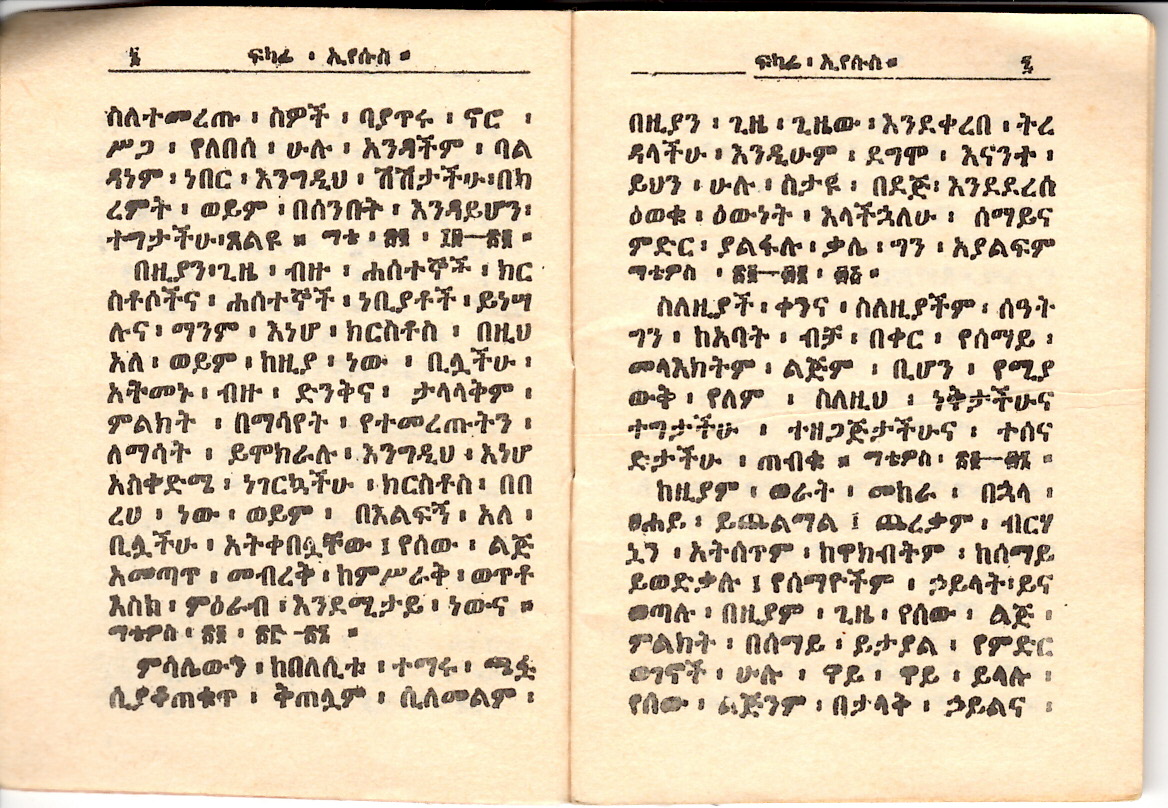 ፮ ፍካሬ ፡ ኢየሱስ ።
ስለተመረጡ ፡ ስዎች ፡ ባያጥሩ ፡ ኖሮ ፡
ሥጋ ፡ የለበሰ ፡ ሁሉ ፡ አንዳችም ፡ ባል
ዳነም ፡ ነበር ፡ እንግዲህ ፡ ሽሽታችሁ፡በክ
ረምት ፡ ወይም ፡ በሰንበት ፡ እንዳይሆን፡
ተግታችሁ፡ጸልዩ ። ማቴ ፡ ፳፬ ፡
በዚያን፡ጊዜ ፡ ብዙ ፡ ሐሰተኞች ፡ ክር
ስቶሶችና ፡ ሐሰተኞች ፡ ነቢያቶች ፡ ይነሣ
ሉና ፡ ማንም ፡ እነሆ ፡ ክርስቶስ ፡ በዚህ
አለ ፡ ወይም ፡ ከዚያ ፡ ነው ፡ ቢሏችሁ ፡
አትመኑ ፡ ብዙ ፡ ድንቅና ፡ ታላላቅም ፡
ምልክት ፡ በማሳየት ፡ የተመረጡትን ፡
ለማሳት ፡ ይሞክራሉ ፡ እንግዲህ ፡ እነሆ
አስቀድሜ ፡ ነገርኳችሁ ፡ ክርስቶስ ፡ በበ
ረሀ ፡ ነው ፡ ወይም ፡ በእልፍኝ ፡ አለ ፡
ቢሏችሁ ፡ አትቀበሏቸው ፤ የሰው ፡ ልጅ
አመጣጥ ፡ መብረቅ ፡ ከምሥራቅ ፡ ወጥቶ
እስከ ፡ ምዕራብ ፡ እንደሚታይ ፡ ነውና ።
ማቴዎስ ፡ ፳፬ ፡ ፳፫ —፳፯ ።
ምሳሌውን ፡ ከበለሲቱ ፡ ተማሩ ፡ ጫፏ
ሲያቆጠቁጥ ፡ ቅጠሏም ፡ ሲለመልም ፡
ፍካሬ ፡ ኢየሱስ ። ፯
በዚያን ፡ ጊዜ ፡ ጊዜው ፡ እንደቀረበ ፡ ትረ
ዳላችሁ ፡ እንዲሁም ፡ ደግሞ ፡ እናንተ ፡
ይህን ፡ ሁሉ ፡ ስታዩ ፡ በደጅ፡ እንደደረሰ
ዕወቁ ፡ ዕውነት ፡ እላችኋለሁ ፡ ሰማይና
ምድር ፡ ያልፋሉ ፡ ቃሌ ፡ ግን ፡ አያልፍም
ማቴዎስ ፡ ፳፬—፴፪ ፡ ፴፭ ።
ስለዚያች ፡ ቀንና ፡ ስለዚያችም ፡ ሰዓት
ግን ፡ ከአባት ፡ ብቻ ፡ በቀር ፡ የሰማይ ፡
መላእክትም ፡ ልጅም ፡ ቢሆን ፡ የሚያ
ውቅ ፡ የለም ፡ ስለዚህ ፡ ነቅታችሁና
ተግታችሁ ፡ ተዘጋጅታችሁና ፡ ተሰና
ድታችሁ ፡ ጠብቁ ። ማቴዎስ ፡ ፳፬—፴፮ ።
ከዚያም ፡ ወራት ፡ መከራ ፡ በኋላ ፡
ፀሐይ ፡ ይጨልማል ፤ ጨረቃም ፡ ብርሃ
ኗን ፡ አትሰጥም ፡ ከዋክብትም ፡ ከሰማይ
ይወድቃሉ ፤ የሰማዮችም ፡ ኃይላት፡ይና
ወጣሉ ፡ በዚያም ፡ ጊዜ ፡ የሰው ፡ ልጅ ፡
ምልክት ፡ በሰማይ ፡ ይታያል ፡ የምድር
ወገኖች ፡ ሁሉ ፡ ዋይ ፡ ዋይ ፡ ይላሉ ፡
የሰው ፡ ልጅንም ፡ በታላቅ ፡ ኃይልና ፡